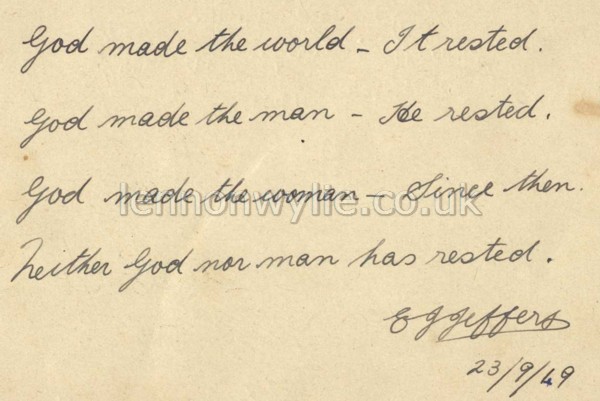 God made the world - It rested.
God made the man - He rested.
God made the woman - Since then.
lennonwylie.co.uk
Neither God nor man has rested.
E G Jeffers
23/9/49